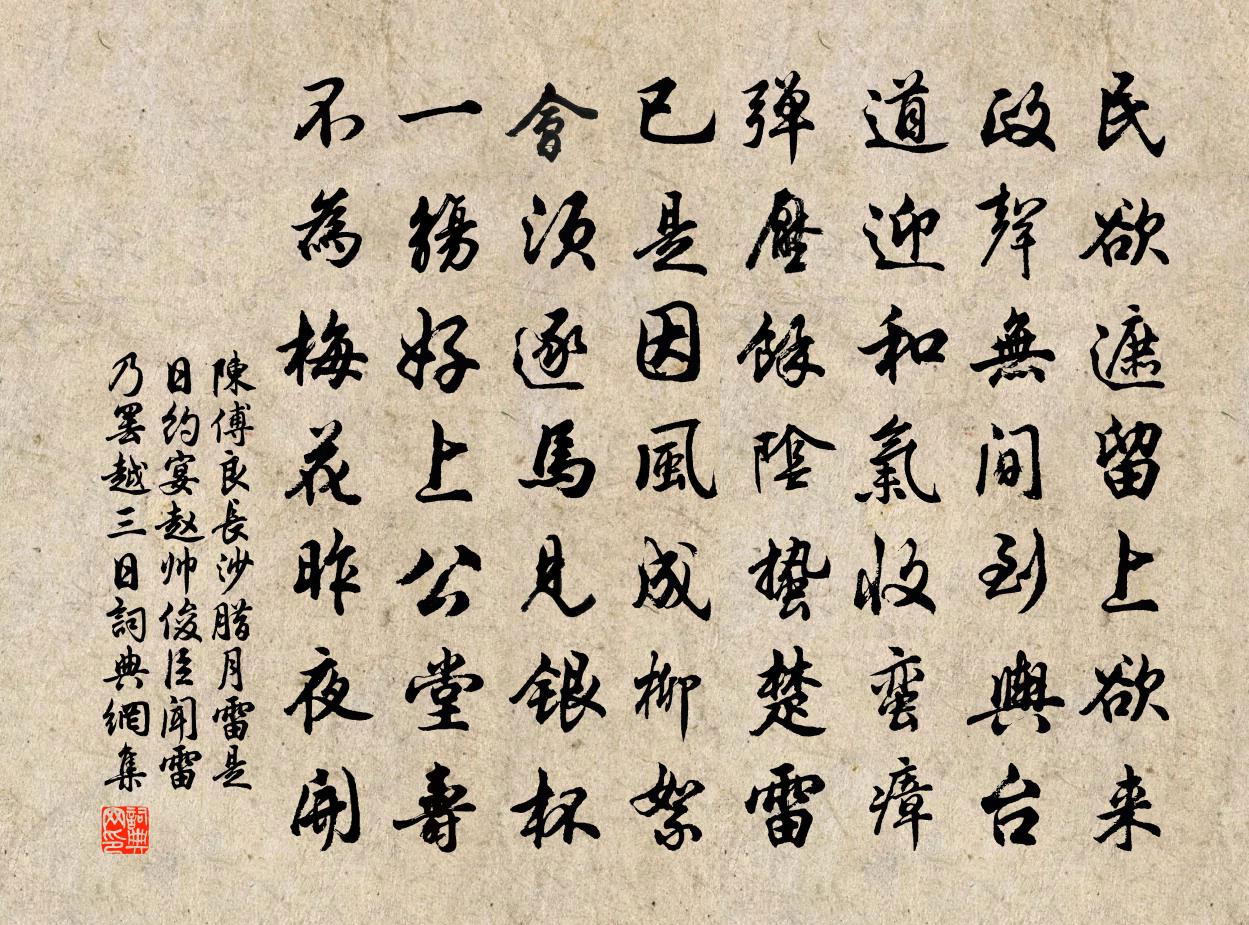 民欲遮留上欲来
政聲無間到輿台
道迎和氣收蛮瘴
弾壓餘陰蟄楚雷
已是因風成柳絮
會須逐馬見銀杯
一觴好上公堂壽
不為梅花昨夜開
陳傅良長沙腊月雷是
日約宴赵帅俊臣闻雷
乃罢越三日詞典網集
詞典
网印